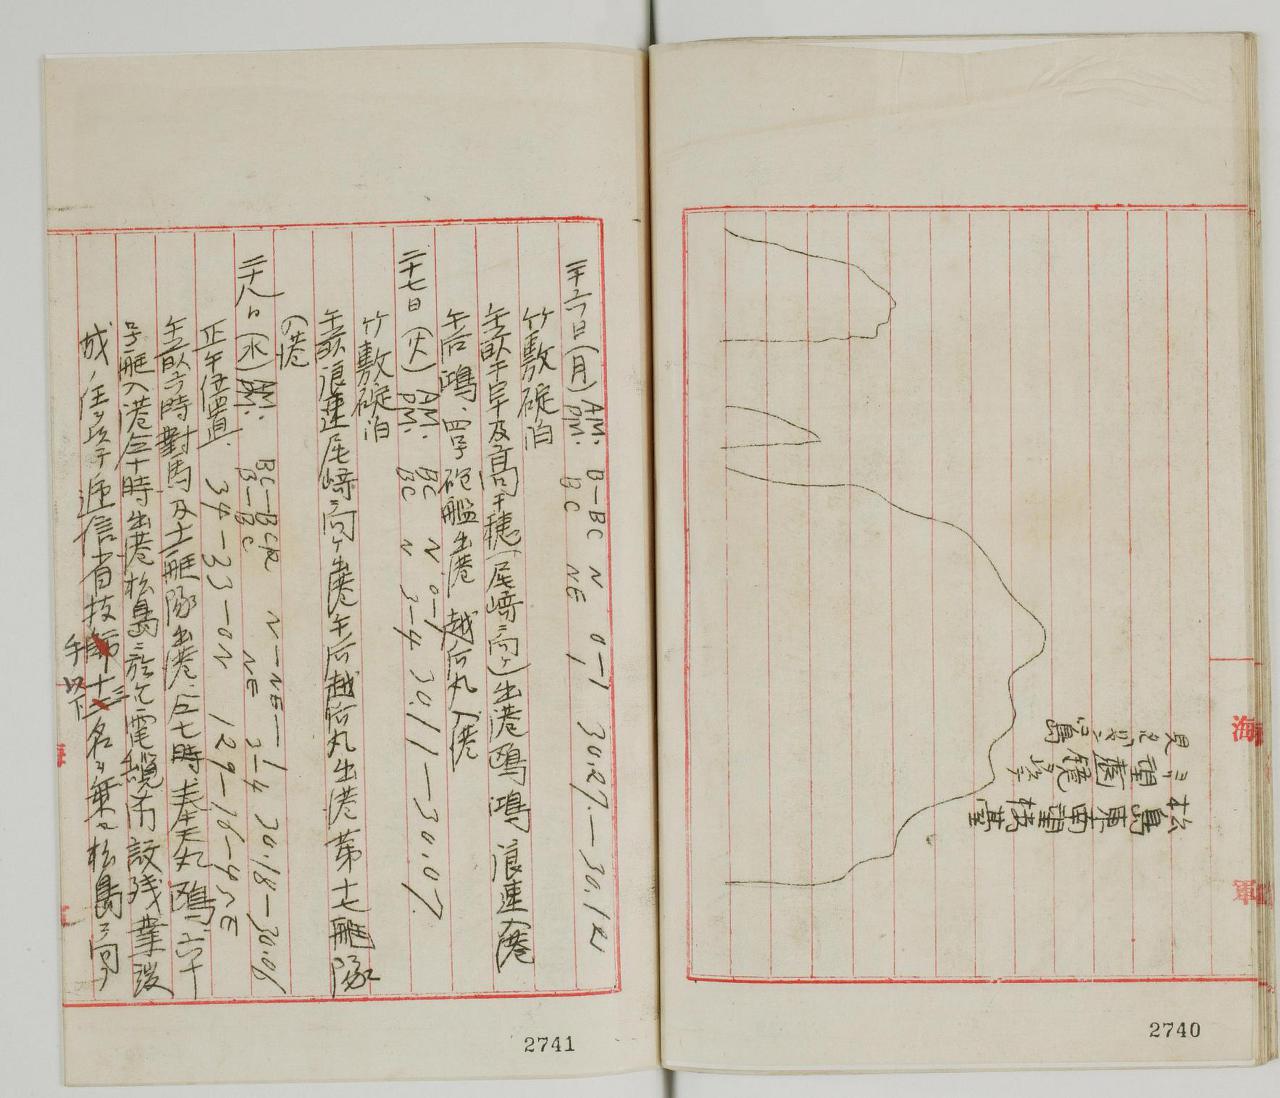 松島東南望楼台
ヨリ望遠鏡ニテ
見タルリヤンコールド島
海
軍
2740
二十六日(月) AM. B—BC N 0—1 30.27.—30.12
PM. BC NE
竹敷碇泊
午前千早及高千穂(尾崎ニ向ケ)出港鴎、鴻、浪速入港
午后鴻、四号砲艦出港 越后丸入港
二十七日(火) AM. BC N 0—1 30.11—30.07.
PM. BC N 3—4
竹敷碇泊
午前浪速尾崎ニ向ケ出港午后越后丸出港第十七艇隊
入港
二十八日(水) AM. BC—BCR N—NE—1 30.18—30.06
PM. B—BC NE 3—4
正午位置. 34—33—0N 129—16—4.5E
午前六時對馬及十一艇隊出港、仝七時奉天丸鴎、六十
号艇入港仝十時出港松島ニ於ケル電纜布設残業後
成ノ任ヲ以テ逓信省技手以下十三名ヲ乗セ松島ニ向フ
2741